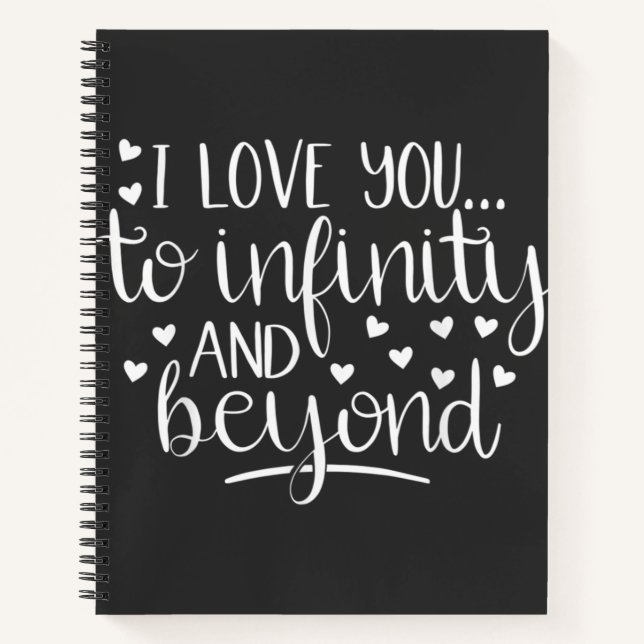 I LOVE YOU...
to infinity
AND
beyond